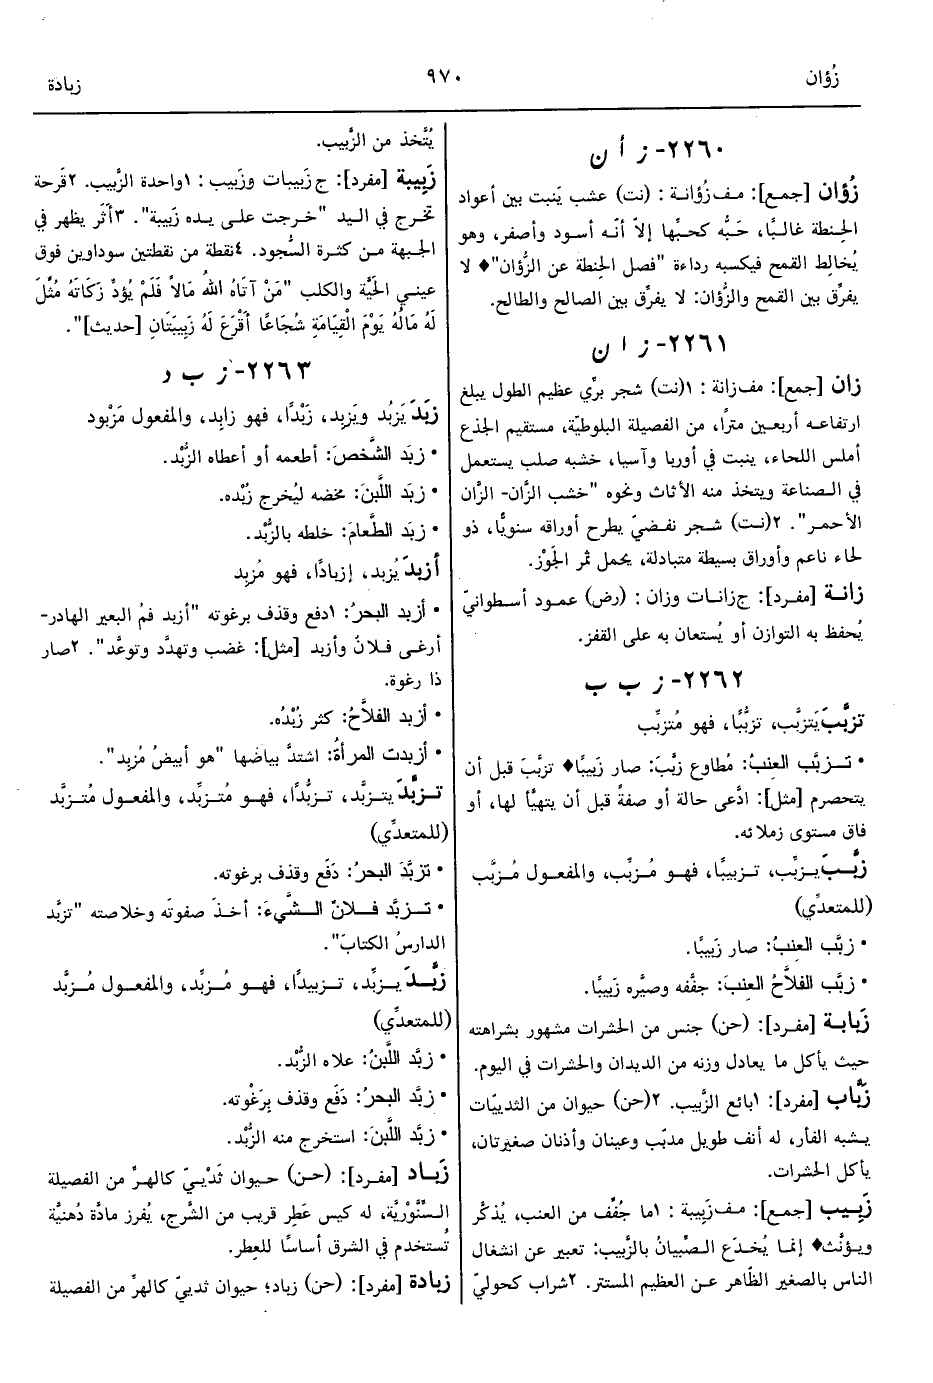 زُؤان
٩٧٠
زبادة
٢٢٦٠- ز أ ن
زُؤان [جمع]: مف زُؤانة : (نت) عشب يَنبت بين أعواد
الحِنطة غالبًا، حَبُّه كحبِّها إلاّ أنّه أسود وأصفر، وهو
يُخالِط القمح فيكسبه رداءة "فصل الحِنطة عن الزُّؤان"♦ لا
يفرِّق بين القمح والزُّؤان: لا يفرِّق بين الصالح والطالح.
٢٢٦١- ز ا ن
زان [جمع]: مف زانة : ١(نت) شجر برِّي عظيم الطول يبلغ
ارتفاعه أربعين مترًا، من الفصيلة البلوطيَّة، مستقيم الجذع
أملس اللحاء، ينبت في أوربا وآسيا، خشبه صلب يستعمل
في الصناعة ويتخذ منه الأثاث ونحوه "خشب الزَّان- الزَّان
الأحمر". ٢(نت) شجر نفضيّ يطرح أوراقه سنويًّا، ذو
لحاء ناعم وأوراق بسيطة متبادلة، يحمل ثمر الجَوْز.
زانة [مفرد]: ج زانات وزان : (رض) عمود أسطوانيّ
يُحفظ به التوازن أو يُستعان به على القفز.
٢٢٦٢- ز ب ب
تزبَّبَ يَتزبَّب، تزبُّبًا، فهو مُتزبِّب
• تزبَّب العنبُ: مُطاوع زبَّبَ: صار زَبيبًا♦ تزبَّبَ قبل أن
يتحصرم [مثل]: ادَّعى حالة أو صفةً قبل أن يتهيَّأ لها، أو
فاق مستوى زملائه.
زبَّبَ يزبِّب، تزبيبًا، فهو مُزبِّب، والمفعول مُزبَّب
(للمتعدِّي)
• زبَّب العنبُ: صار زَبيبًا.
• زبَّب الفلاَّحُ العنبَ: جفَّفه وصيَّره زَبيبًا.
زَبابة [مفرد]: (حن) جنس من الحشرات مشهور بشراهته
حيث يأكل ما يعادل وزنه من الديدان والحشرات في اليوم.
زَبَّاب [مفرد]: ١بائع الزَّبيب. ٢(حن) حيوان من الثدييّات
يشبه الفأر، له أنف طويل مدبّب وعينان وأذنان صغيرتان،
يأكل الحشرات.
زَبيب [جمع]: مف زَبيبة : ١ما جُفِّف من العنب، يُذكَّر
ويؤنَّث♦ إنما يُخدَع الصِّبيانُ بالزَّبيب: تعبير عن انشغال
الناس بالصغير الظّاهر عن العظيم المستتر. ٢شراب كحوليّ
يُتَّخذ من الزَّبيب.
زَبيبة [مفرد]: ج زَبيبات وزَبيب : ١واحدة الزَّبيب. ٢قَرحة
تخرج في اليد "خرجت على يده زَبيبة". ٣أثَر يظهر في
الجبهة من كثرة السُّجود. ٤نقطة من نقطتين سوداوين فوق
عيني الحَيَّة والكلب "مَنْ آتَاهُ اللهُ مَالاً فَلَمْ يُؤَدِّ زَكَاتَهُ مُثِّلَ
لَهُ مَالُهُ يَوْمَ الْقِيَامَةِ شُجَاعًا أَقْرَعَ لَهُ زَبِيبَتَانِ [حديث]".
٢٢٦٣- ز ب د
زبَدَ يَزبُد ويَزبِد، زَبْدًا، فهو زابِد، والمفعول مَزْبود
• زبَد الشَّخصَ: أطعمه أو أعطاه الزُّبْد.
• زبَد اللَّبنَ: مخضه ليُخرج زُبْده.
• زبَد الطَّعامَ: خلطه بالزُّبْد.
أزبدَ يُزبد، إزبادًا، فهو مُزبِد
• أزبد البحرُ: ١دفع وقذف برغوته "أزبد فمُ البعير الهادر-
أرغى فلانٌ وأزبد [مثل]: غضب وتهدَّد وتوعَّد". ٢صار
ذا رغوة.
• أزبد الفلاَّحُ: كثر زُبْدُه.
• أزبدت المرأةُ: اشتدَّ بياضها "هو أبيضُ مُزبِد".
تزبَّدَ يتزبَّد، تزبُّدًا، فهو مُتزبِّد، والمفعول مُتزبَّد
(للمتعدِّي)
• تزبَّدَ البحرُ: دَفَع وقذف برغوته.
• تزبَّد فلانٌ الشَّيءَ: أخذَ صفوتَه وخلاصته "تزبَّد
الدارسُ الكتابَ".
زبَّدَ يزبِّد، تزبيدًا، فهو مُزبِّد، والمفعول مُزبَّد
(للمتعدِّي)
• زبَّد اللَّبنُ: علاه الزُّبْد.
• زبَّد البحرُ: دَفَع وقذف بِرَغْوته.
• زبَّد اللَّبنَ: استخرج منه الزُّبْد.
زَبَاد [مفرد]: (حن) حيوان ثَدْييّ كالهرِّ من الفصيلة
السِّنَّوْريَّة، له كيس عَطِر قريب من الشَّرج، يُفرز مادَّة دُهنيَّة
تُستخدم في الشرق أساسًا للعِطر.
زبادة [مفرد]: (حن) زباد؛ حيوان ثدييّ كالهرِّ من الفصيلة